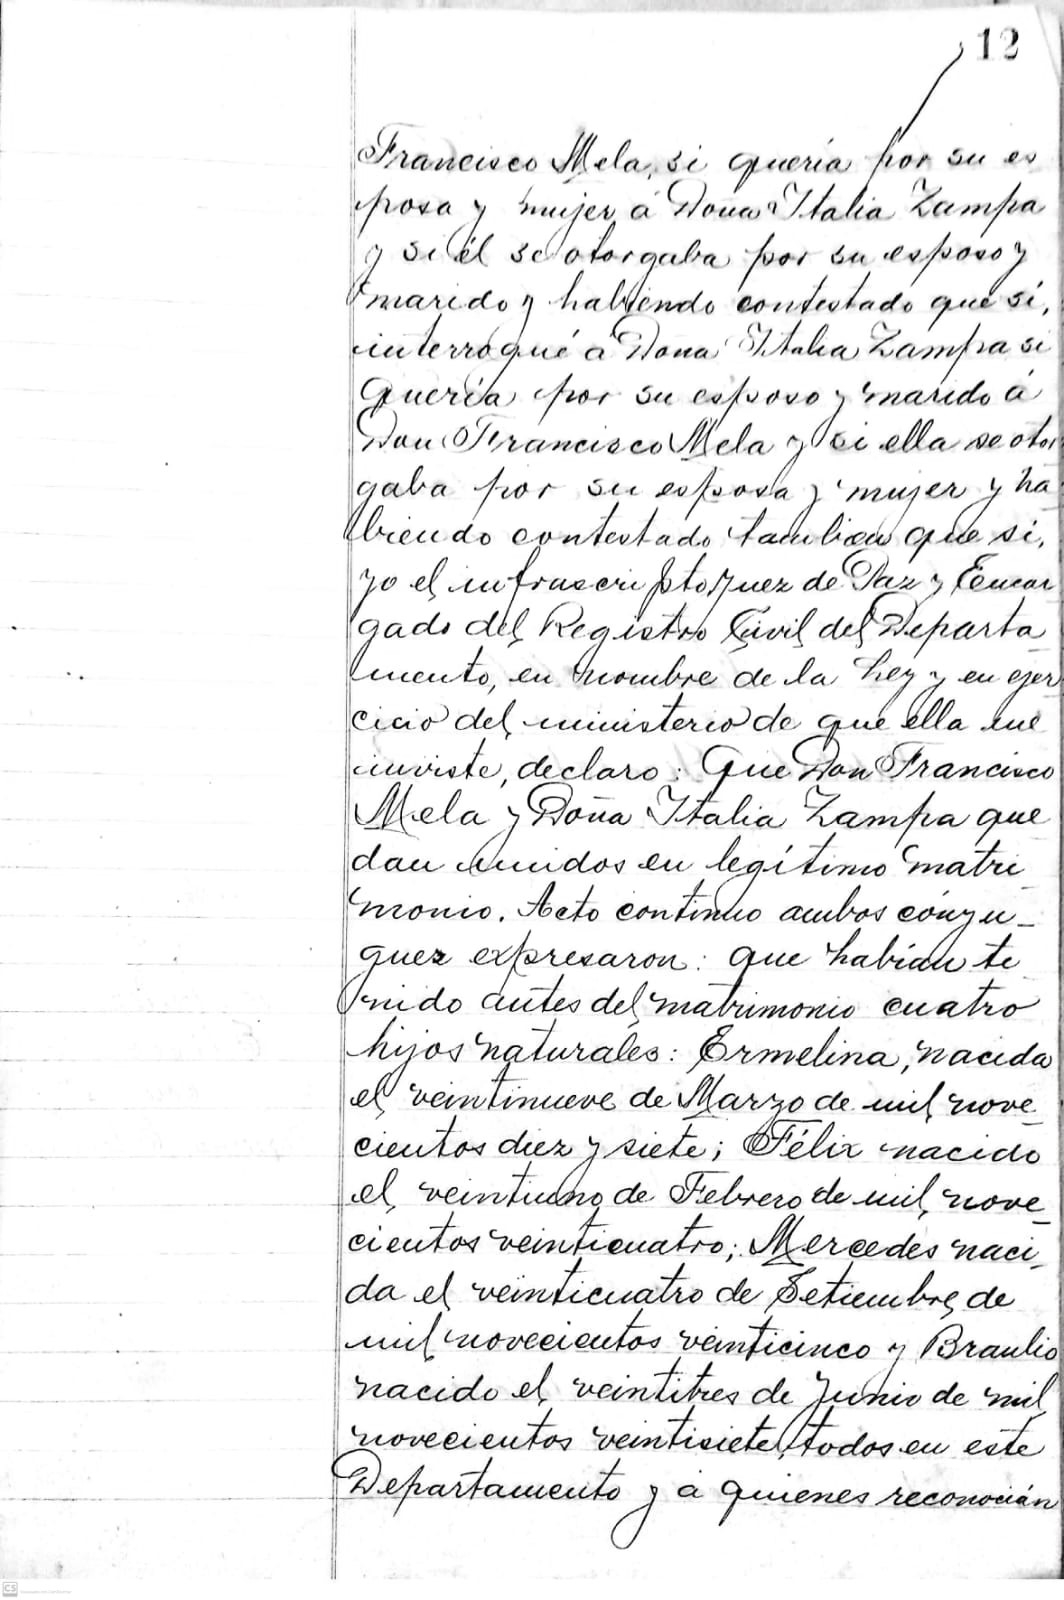 12
Francisco Mela, si quería por su es
posa y mujer á Doña Italia Zampa
y si él se otorgaba por su esposo y
marido y habiendo contestado que sí,
interrogué á Doña Italia Zampa si
quería por su esposo y marido á
Don Francisco Mela y si ella se otor
gaba por su esposa y mujer y ha
biendo contestado tambien que si,
yo el infrascripto Juez de Paz y Encar
gado del Registro Civil del Departa
mento, en nombre de la Ley y en ejer
cicio del ministerio de que ella me
inviste, declaro: Que Don Francisco
Mela y Doña Italia Zampa que
dan unidos en legítimo matri
monio. Acto continuo ambos cónyu-
guez expresaron: que habían te
nido antes del matrimonio cuatro
hijos naturales: Ermelina, nacida
el veintinueve de Marzo de mil nove
cientos diez y siete; Félix nacido
el veintiuno de Febrero de mil nove
cientos veinticuatro; Mercedes naci
da el veinticuatro de Setiembre de
mil novecientos veinticinco y Braulio
nacido el veintitres de Junio de mil
novecientos veintisiete, todos en este
Departamento y á quienes reconocián
CS